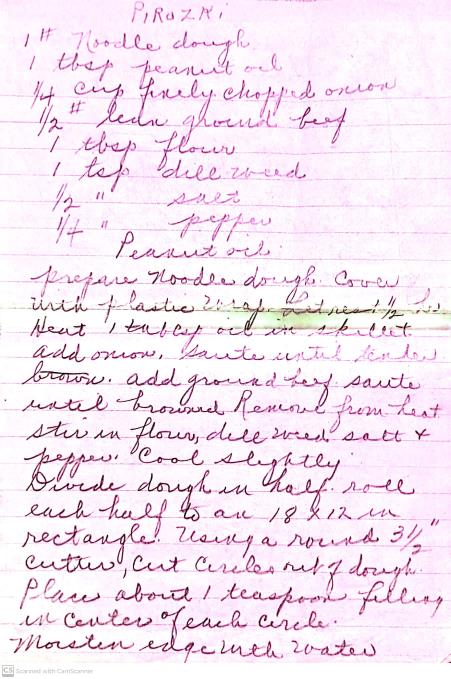 PIROZKI
1 # Noodle dough
1 tbsp peanut oil
1/4 cup finely chopped onion
1/2 # lean ground beef
1 tbsp flour
1 tsp dill weed
1/2 " salt
1/4 " pepper
Peanut oil
prepare noodle dough. Cover
with plastic wrap. Let rest 1/2 hr
Heat 1 tbsp oil in skillet
add onion. Saute until tender
brown. add ground beef. saute
until browned Remove from heat
stir in flour, dill weed salt +
pepper. Cool slightly
Divide dough in half. roll
each half to an 18 x 12 in
rectangle. Using a round 3 1/2"
cutter, cut circles out of dough.
Place about 1 teaspoon filling
in center of each circle.
Moisten edge with water
CS Scanned with CamScanner